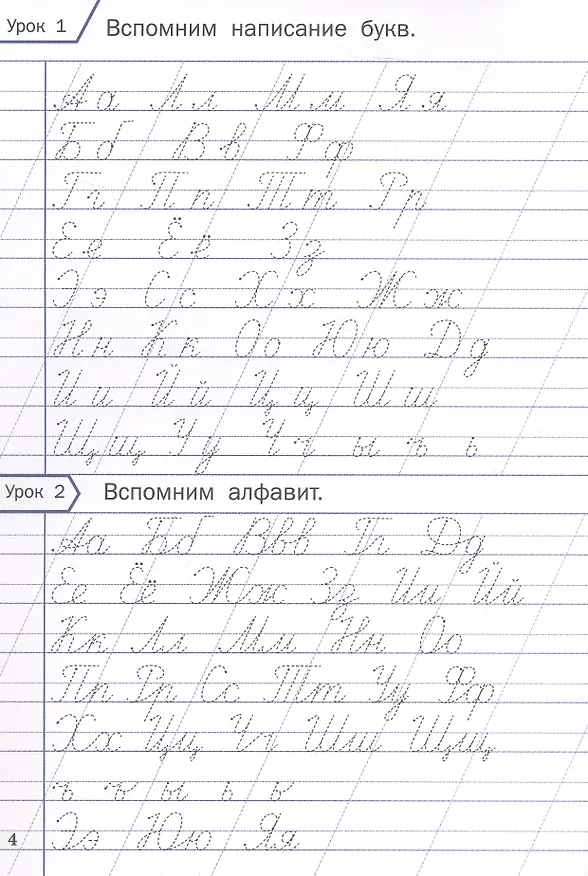 Урок 1 Вспомним написание букв.
Аа Лл Мм Яя
Бб Вв Фф
Гг Пп Тт Рр
Ее Ёё Зз
Ээ Сс Хх Жж
Нн Кк Оо Юю Дд
Ии Йй Цц Шш
Щщ Уу Чч ы ъ ь
Урок 2 Вспомним алфавит.
Аа Бб Ввв Гг Дд
Ее Ёё Жж Зз Ии Йй
Кк Лл Мм Нн Оо
Пп Рр Сс Тт Уу Фф
Хх Цц Чч Шш Щщ
ъ ъ ы ь ь
Ээ Юю Яя
4